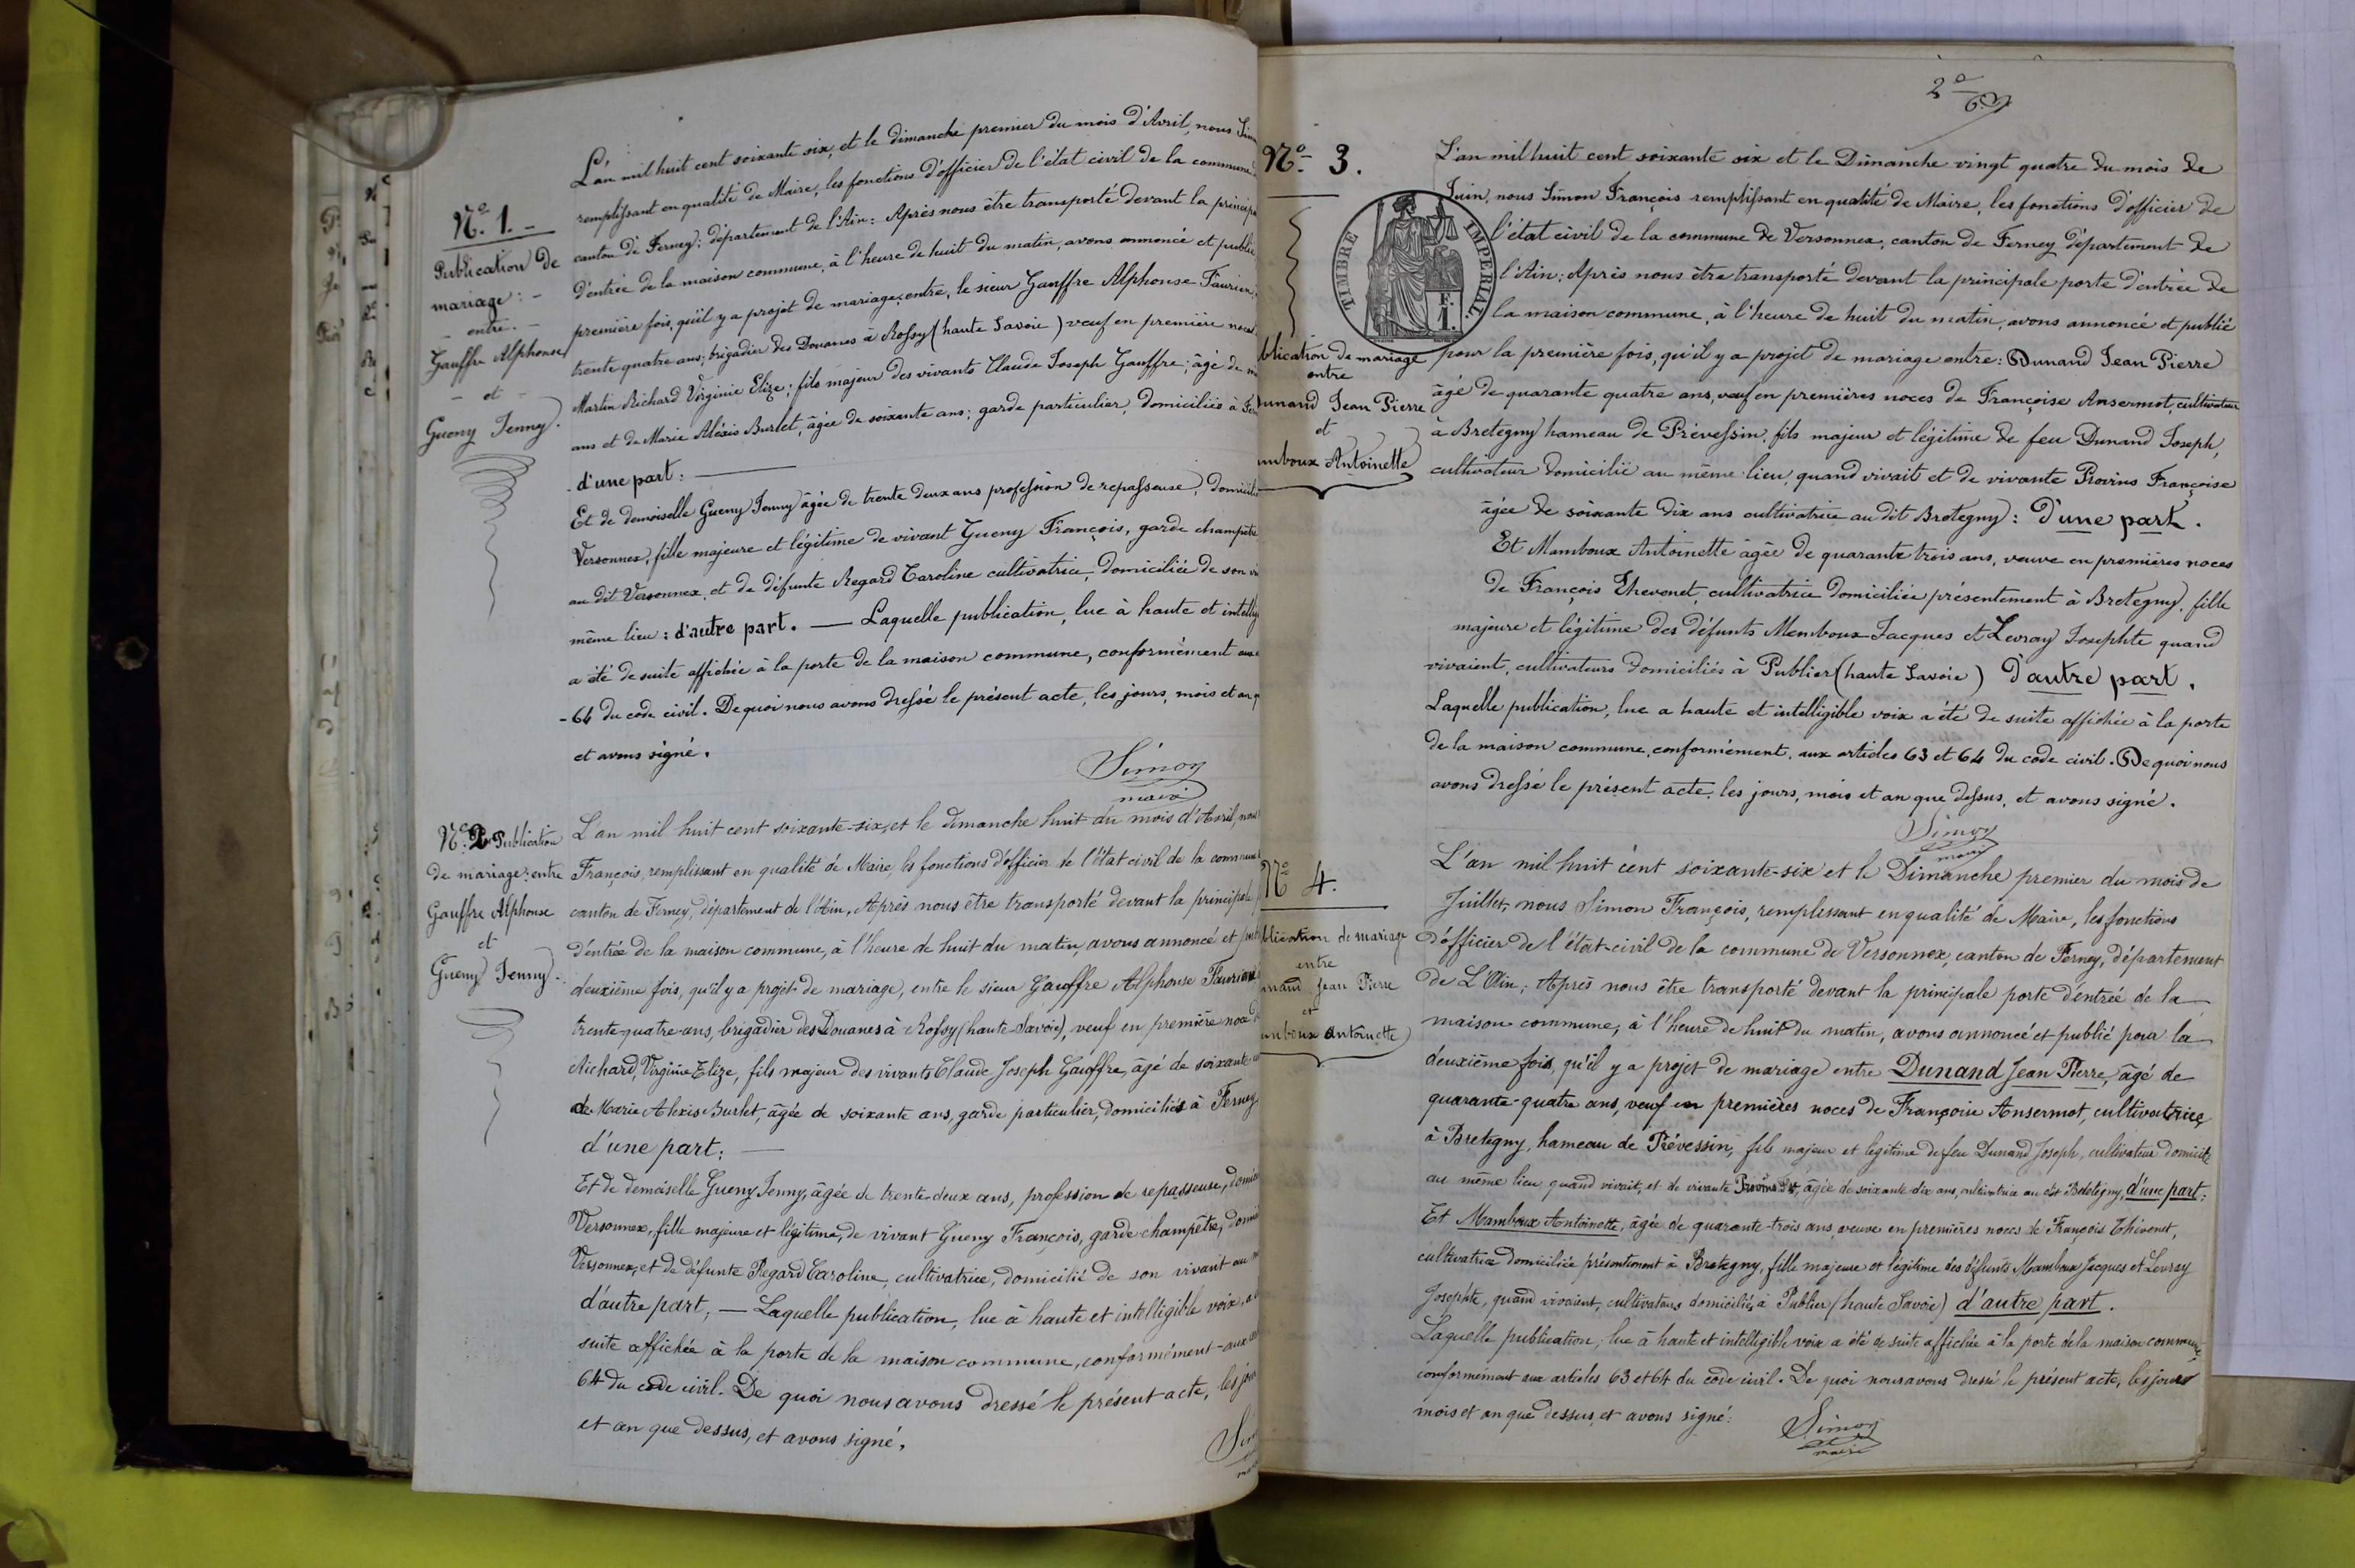 N.º 1.
Publication de
mariage :
entre.
Gauffre Alphonse
et
Gueny Jenny.
L'an mil huit cent soixante six, et le dimanche premier du mois d'Avril, nous
remplissant en qualité de Maire, les fonctions d'officier de l'état civil de la commune
canton de Ferney : département de l'Ain : Après nous être transporté devant la
d'entrée de la maison commune, à l'heure de huit du matin, avons annoncé et publié
première fois, qu'il y a projet de mariage, entre, le sieur Gauffre Alphonse
trente quatre ans ; brigadier des Douanes à Rossy (haute Savoie) veuf en première noces
Martin Richard Virginie Elize ; fils majeur des vivants Claude Joseph Gauffre ; âgé de
ans et de Marie Aléxis Burlet, âgée de soixante ans ; garde particulier, domiciliés à
d'une part :
Et de demoiselle Gueny Jenny âgée de trente deux ans profession de repasseuse,
Versonnex, fille majeure et légitime de vivant Gueny François, garde champêtre
au dit Versonnex, et de défunte Regard Caroline cultivatrice, domiciliée de son
même lieu : d'autre part. — Laquelle publication, lue à haute et
a été de suite affichée à la porte de la maison commune, conformément aux
- 64 du code civil. De quoi nous avons dressé le présent acte, les jours, mois et an
et avons signé.
Simon
maire
Nº. 2 Publication
de mariage : entre
Gauffre Alphonse
et
Gueny Jenny.
L'an mil huit cent soixante-six, et le dimanche huit du mois d'Avril, nous
François, remplissant en qualité de Maire, les fonctions d'officier de l'état civil de la commune
canton de Ferney, département de l'Ain, Après nous être transporté devant la principale
d'entrée de la maison commune, à l'heure de huit du matin, avons annoncé et
deuxième fois, qu'il y a projet de mariage, entre le sieur Gauffre Alphonse
trente-quatre-ans, brigadier des Douanes à Rossy (haute-Savoie), veuf en première noce
Richard, Virginie Elize, fils majeur des vivants Claude Joseph Gauffre, âgé de soixante
de Marie Alexis Burlet, âgée de soixante ans, garde particulier, domiciliés à Ferney
d'une part ; —
Et de demoiselle Gueny Jenny, âgée de trente-deux ans, profession de repasseuse,
Versonnex, fille majeure et légitime, de vivant Gueny François, garde-champêtre,
Versonnex, et de défunte Regard Caroline, cultivatrice, domicilié de son vivant au
d'autre part ; — Laquelle publication, lue à haute et intelligible voix, a
suite affichée à la porte de la maison commune, conformément aux
64 du code civil. De quoi nous avons dressé le présent acte, les
et an que dessus, et avons signé.
Nº. 3.
TIMBRE IMPERIAL.
de mariage
entre
Jean Pierre
et
Antoinette
L'an mil huit cent soixante six et le Dimanche vingt quatre du mois de
Juin, nous Simon François remplissant en qualité de Maire, les fonctions d'officier de
l'état civil de la commune de Versonnex, canton de Ferney département de
l'Ain ; Après nous être transporté devant la principale porte d'entrée de
la maison commune, à l'heure de huit du matin, avons annoncé et publié
pour la première fois, qu'il y a projet de mariage entre : Dunand Jean Pierre
âgé de quarante quatre ans, veuf en premières noces de Françoise Ansermot, cultivateur
à Bretegny hameau de Prévessin, fils majeur et légitime de feu Dunand Joseph,
cultivateur domicilié au même lieu, quand vivait et de vivante Françoise
âgée de soixante dix ans cultivatrice au dit Bretegny : d'une part.
Et Mamboux Antoinette âgée de quarante trois ans, veuve en premières noces
de François Thevenet, cultivatrice domiciliée présentement à Bretegny, fille
majeure et légitime des défunts Memboux Jacques et Levray Josephte quand
vivaient, cultivateurs domiciliés à Publier (haute Savoie) d'autre part.
Laquelle publication, lue a haute et intelligible voix a été de suite affichée à la porte
de la maison commune, conformément, aux articles 63 et 64 du code civil. De quoi nous
avons dressé le présent acte, les jours, mois et an que dessus, et avons signé.
Simon
maire
Nº 4.
de mariage
entre
Jean Pierre
et
Antoinette
L'an mil huit cent soixante-six et le Dimanche premier du mois de
Juillet, nous Simon François, remplissant en qualité de Maire, les fonctions
d'officier de l'état-civil de la commune de Versonnex, canton de Ferney, département
de L'Ain ; Après nous être transporté devant la principale porte d'entrée de la
maison commune, à l'heure de huit du matin, avons annoncé et publié pour la
deuxième fois, qu'il y a projet de mariage entre Dunand Jean Pierre, âgé de
quarante-quatre ans, veuf en premières noces de Françoise Ansermot, cultivatrice
à Bretegny, hameau de Prévessin, fils majeur et légitime de feu Dunand Joseph, cultivateur domicilié
au même lieu quand vivait, et de vivante âgée de soixante-dix ans, cultivatrice au dit Bretegny, d'une part ;
Et Mamboux Antoinette, âgée de quarante-trois ans, veuve en premières noces de François Thévenet,
cultivatrice domiciliée présentement à Bretegny, fille majeure et légitime des défunts Mamboux Jacques et Levray
Josephte, quand vivaient, cultivateurs domiciliés à Publier (haute Savoie) d'autre part.
Laquelle publication, lue à haute et intelligible voix a été de suite affichée à la porte de la maison commune,
conformément aux articles 63 et 64 du code civil. De quoi nous avons dressé le présent acte, les jours
mois et an que dessus, et avons signé :
Simon
maire